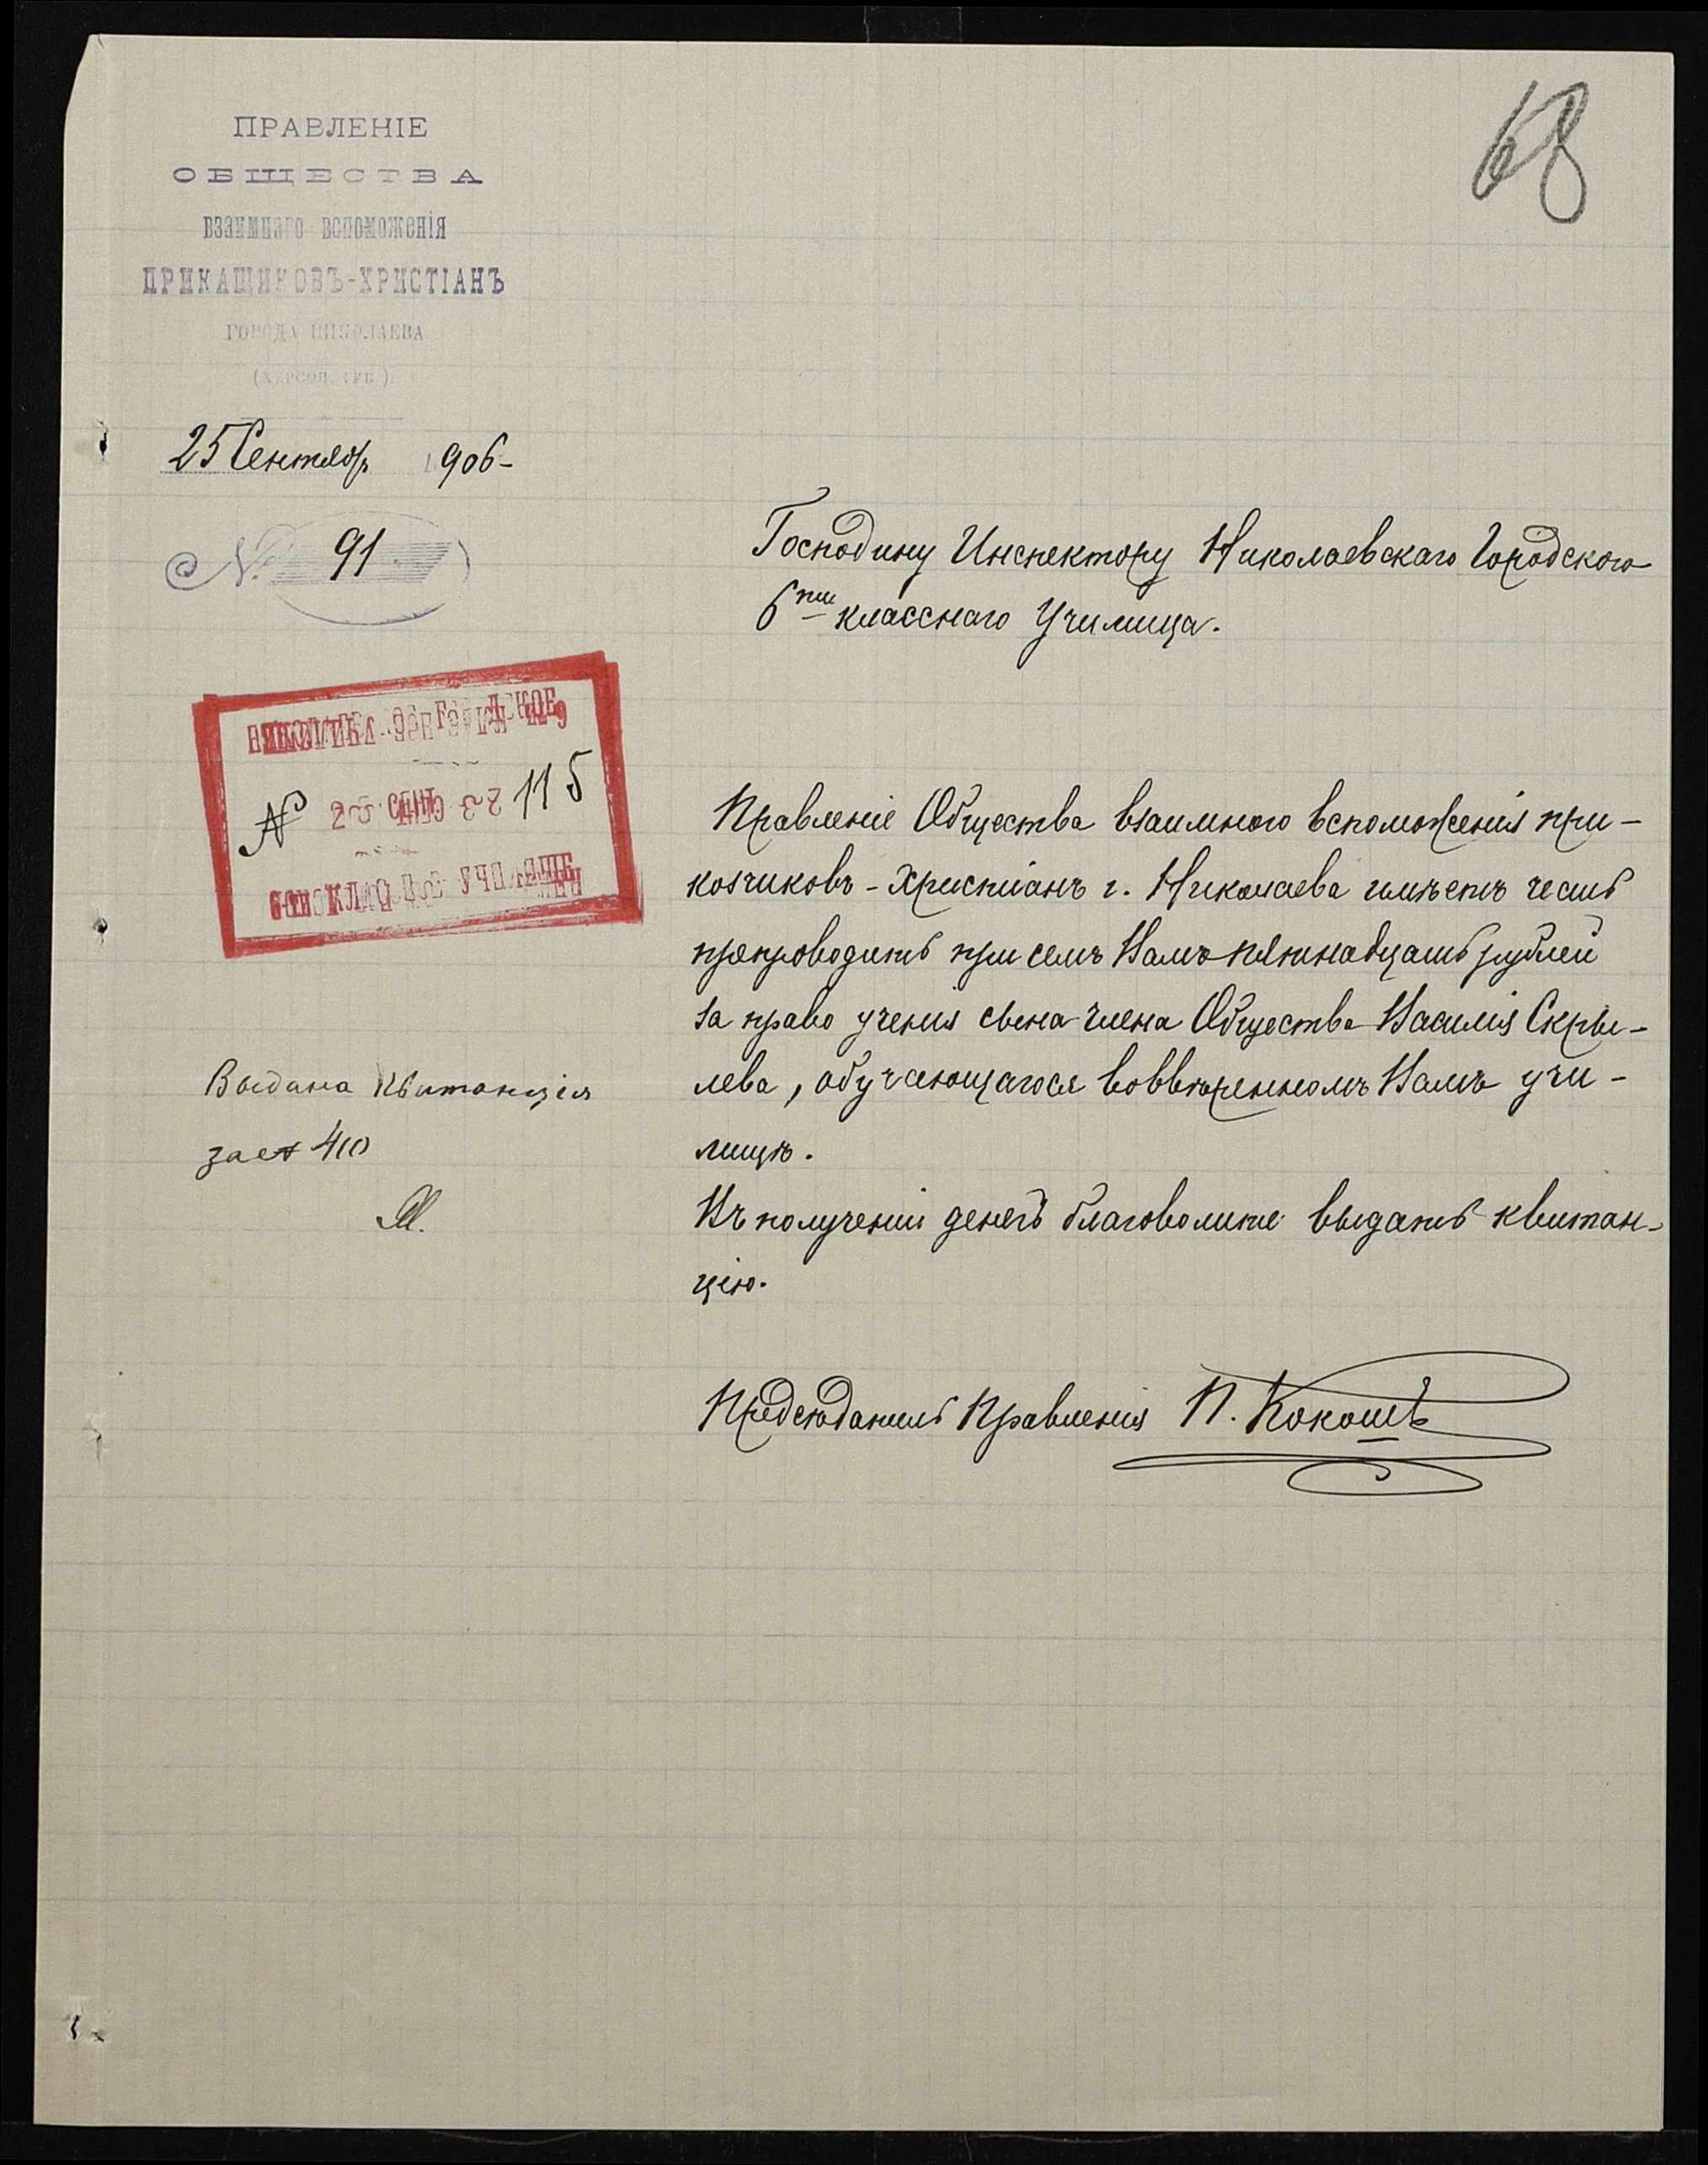 68
ПРАВЛЕНІЕ
ОБЩЕСТВА
взаимнаго вспоможенія
ПРИКАЩИКОВЪ-ХРИСТІАНЪ
ГОРОДА НИКОЛАЕВА
(ХЕРСОН. ГУБ.).
25 Сентябр 1906-
№ 91
Господину Инспектору Николаевскаго Городского
6ти классного Училища.
№ 115
Правленіе Общества взаимного вспоможенія при-
козчиковъ-Христіанъ г. Николаева имѣетъ честь
препроводить при семъ Вамъ пятнадцать рублей
за право ученія сына члена Общества Василія Скры-
лева, обучающагося воввѣренномъ Вамъ учи-
лищѣ.
Въ полученіи денегъ благоволите выдать квитан-
цію.
Выдана квитанція
за № 40
Предсѣдатель Правленія П. Кокошъ